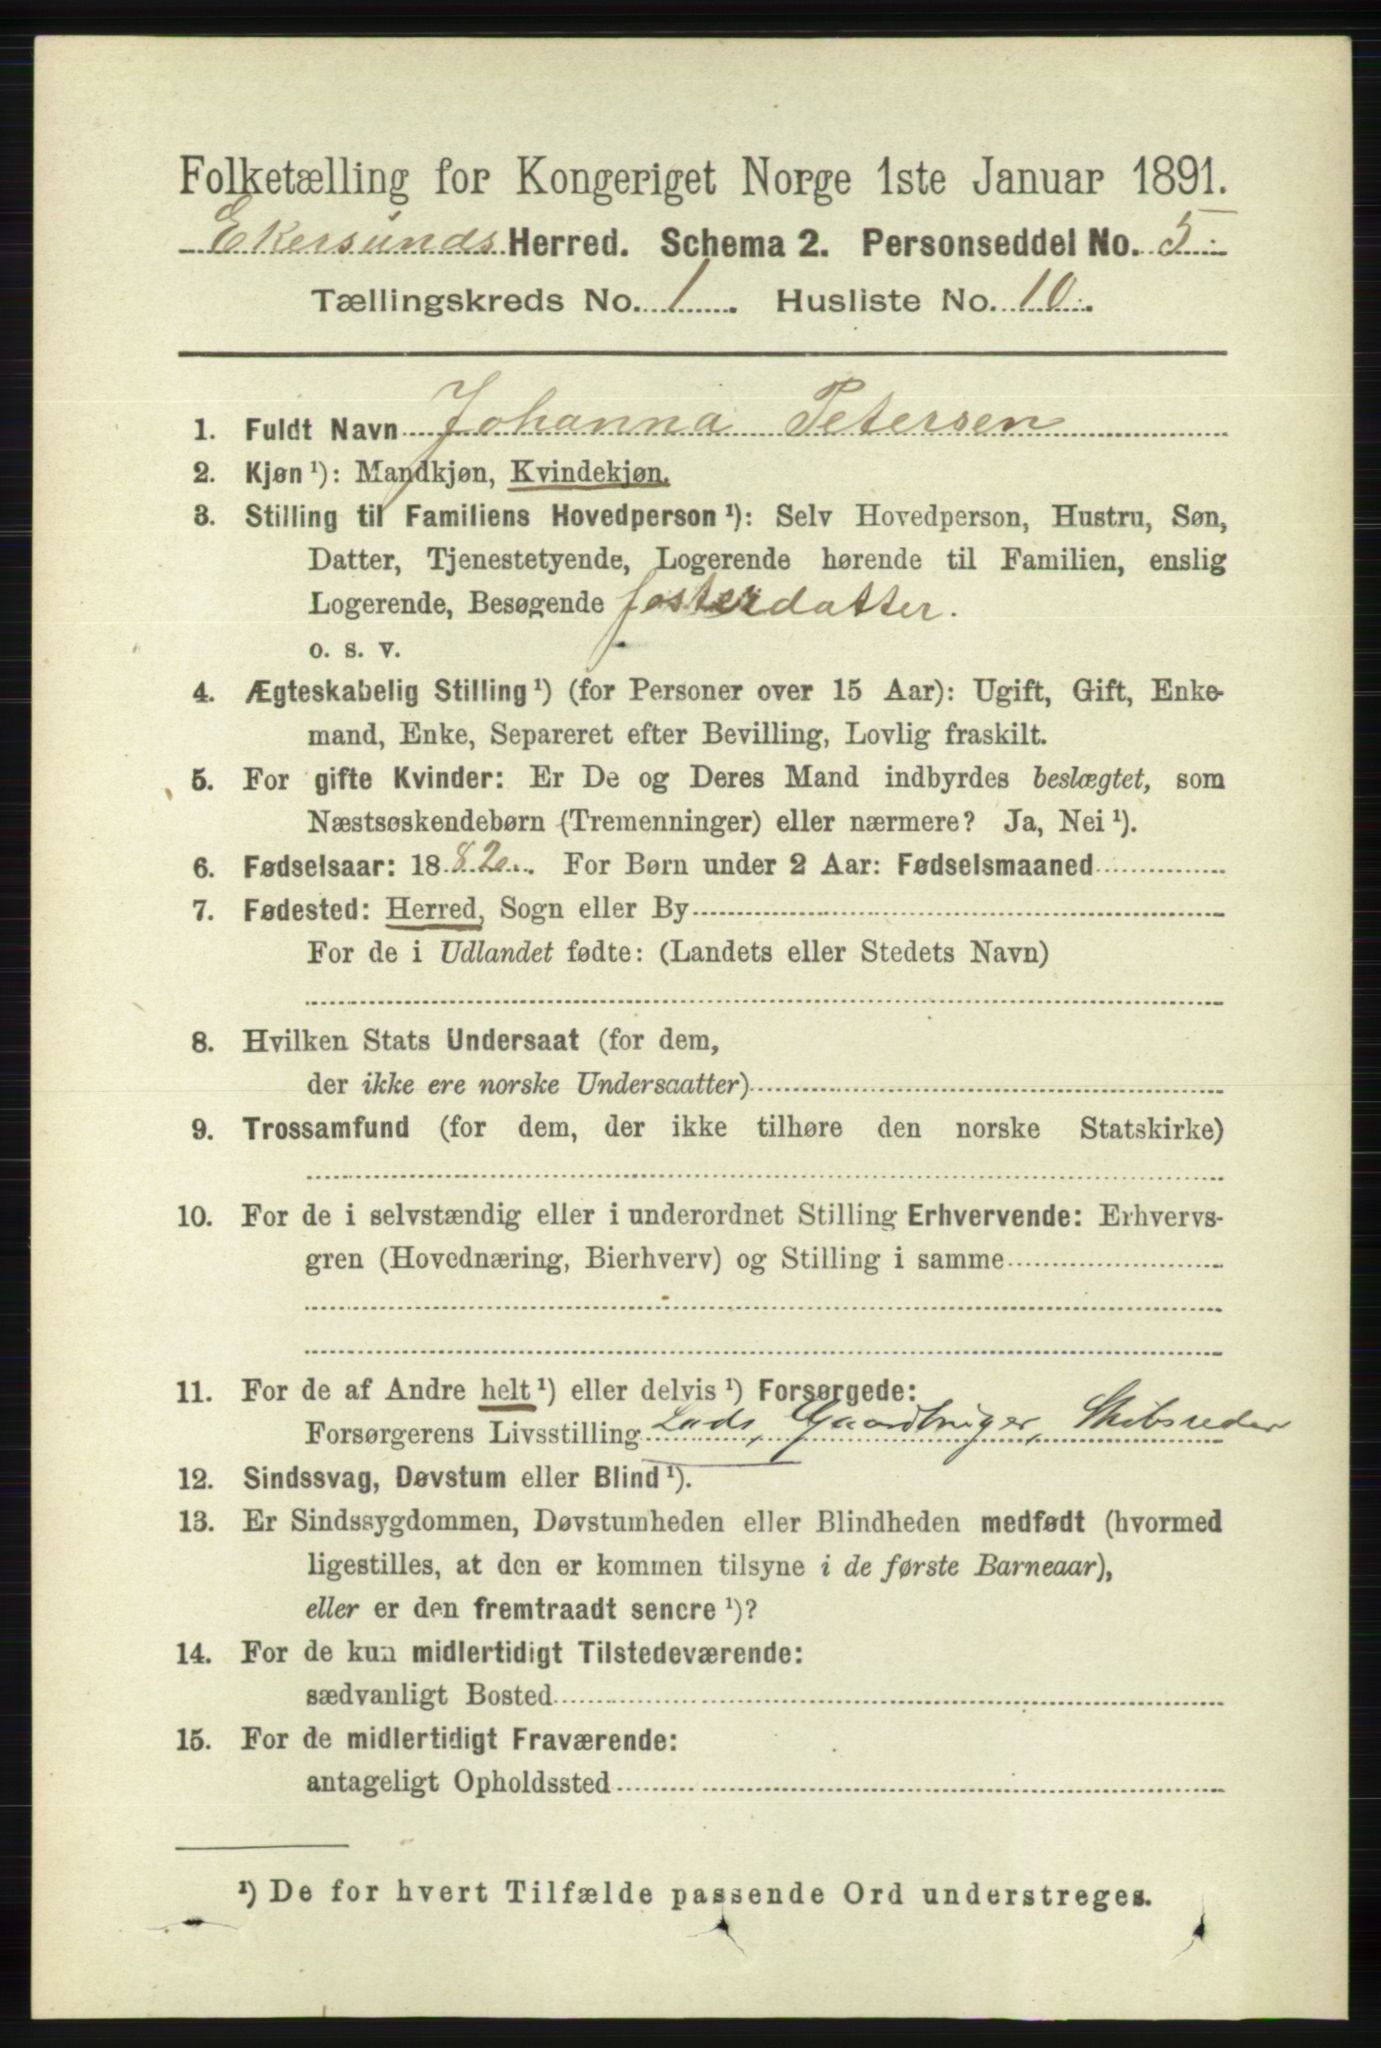 Folketælling for Kongeriget Norge 1ste Januar 1891.
Ekersunds Herred. Schema 2. Personseddel No. 5
Tællingskreds No. 1. Husliste No. 10.
1. Fuldt Navn Johanna Petersen
2. Kjøn ¹): Mandkjøn, Kvindekjøn.
3. Stilling til Familiens Hovedperson ¹): Selv Hovedperson, Hustru, Søn,
Datter, Tjenestetyende, Logerende hørende til Familien, enslig
Logerende, Besøgende fosterdatter.
o. s. v.
4. Ægteskabelig Stilling ¹) (for Personer over 15 Aar): Ugift, Gift, Enke-
mand, Enke, Separeret efter Bevilling, Lovlig fraskilt.
5. For gifte Kvinder: Er De og Deres Mand indbyrdes beslægtet, som
Næstsøskendebørn (Tremenninger) eller nærmere? Ja, Nei ¹).
6. Fødselsaar: 1882. For Børn under 2 Aar: Fødselsmaaned
7. Fødested: Herred, Sogn eller By
For de i Udlandet fødte: (Landets eller Stedets Navn)
8. Hvilken Stats Undersaat (for dem,
der ikke ere norske Undersaatter)
9. Trossamfund (for dem, der ikke tilhøre den norske Statskirke)
10. For de i selvstændig eller i underordnet Stilling Erhvervende: Erhvervs-
gren (Hovednæring, Bierhverv) og Stilling i samme
11. For de af Andre helt ¹) eller delvis ¹) Forsørgede:
Forsørgerens Livsstilling Lods, Gaardbruger, Skibsreder
12. Sindssvag, Døvstum eller Blind ¹).
13. Er Sindssygdommen, Døvstumheden eller Blindheden medfødt (hvormed
ligestilles, at den er kommen tilsyne i de første Barneaar),
eller er den fremtraadt senere ¹)?
14. For de kun midlertidigt Tilstedeværende:
sædvanligt Bosted
15. For de midlertidigt Fraværende:
antageligt Opholdssted
¹) De for hvert Tilfælde passende Ord understreges.